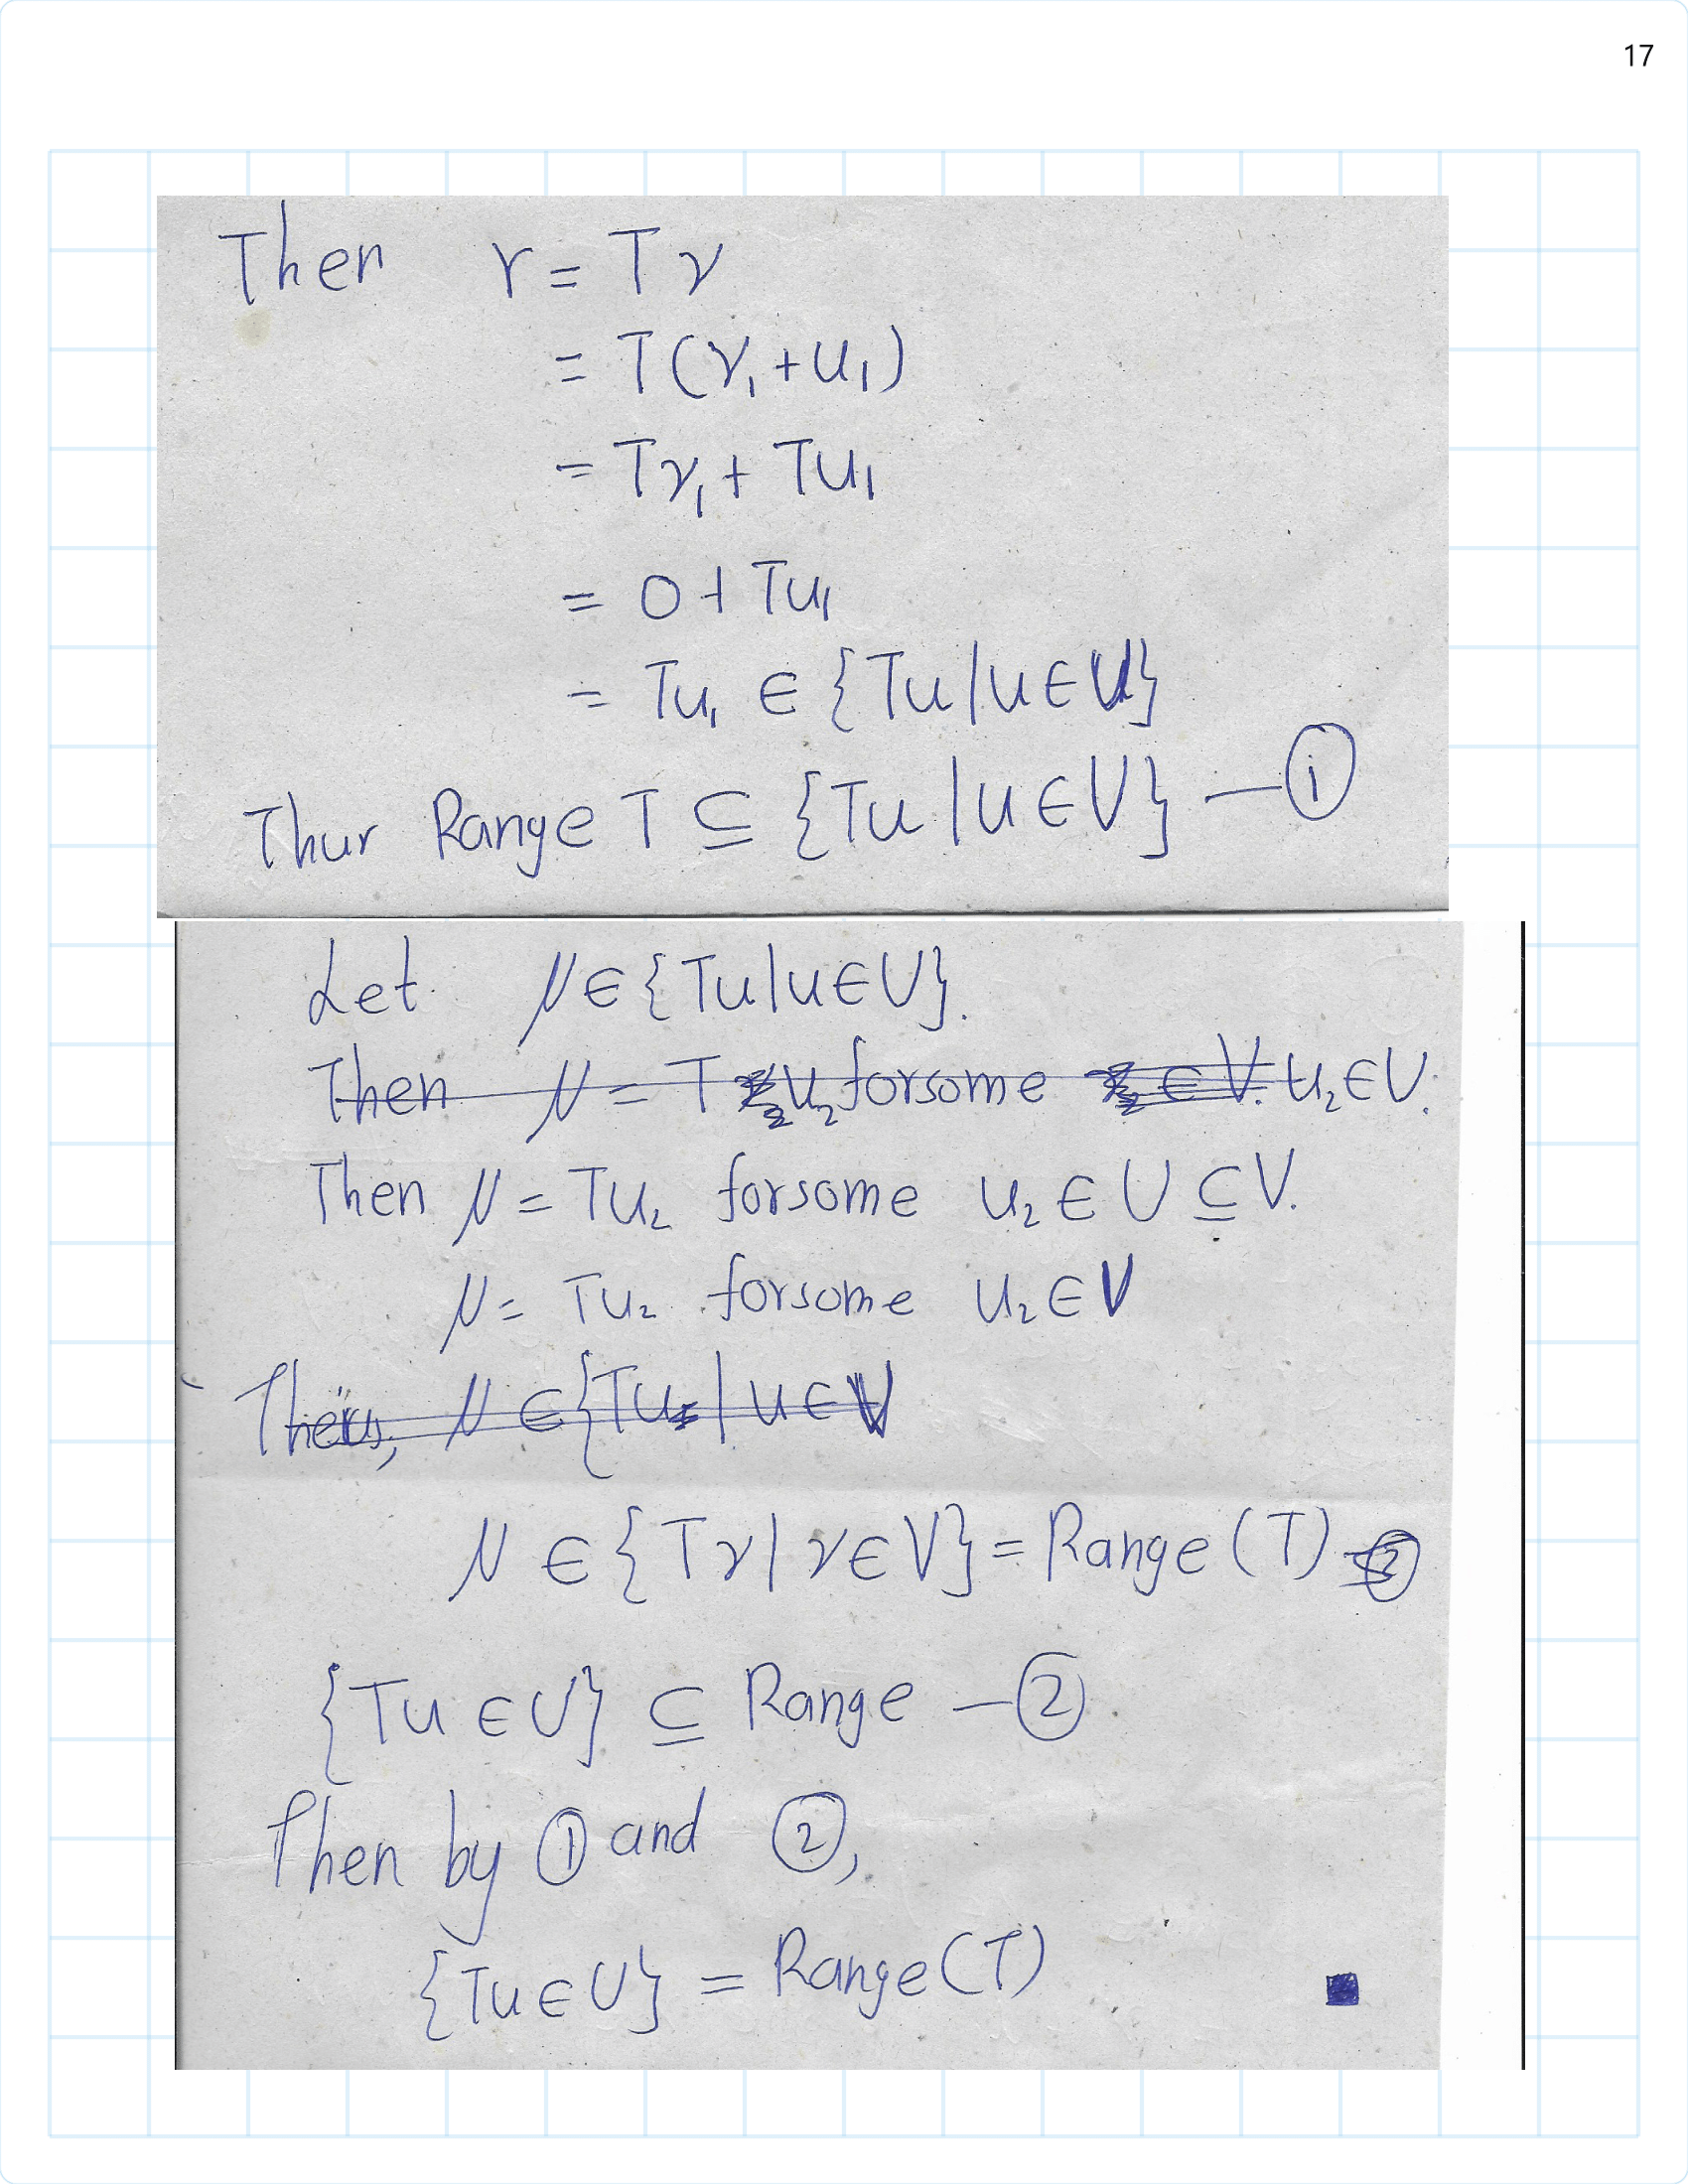 17
Then r = Tv
= T(v₁+u₁)
= Tv₁ + Tu₁
= 0 + Tu₁
= Tu₁ ∈ {Tu|u∈U}
Thur Range T ⊆ {Tu|u∈U} — ①
Let μ∈{Tu|u∈U}.
Then μ = T u₂ forsome u₂∈U.
Then μ = Tu₂ forsome u₂ ∈ U ⊆ V.
μ = Tu₂ forsome u₂ ∈ V
Thus, μ ∈ {Tu | u ∈ V
μ ∈ {Tv | v∈V} = Range (T)
{Tu ∈ U} ⊆ Range — ②
Then by ① and ②,
{Tu ∈ U} = Range (T)